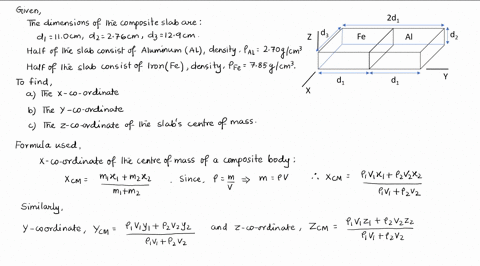 Given,
The dimensions of the composite slab are:
d₁ = 11.0cm, d₂ = 2.76cm, d₃ = 12.9cm.
Half of the slab consist of Aluminum (AL), density, ρ_AL = 2.70 g/cm³
Half of the slab consist of Iron (Fe), density, ρ_Fe = 7.85 g/cm³.
To find,
a) The x-co-ordinate
b) The y-co-ordinate
c) The z-co-ordinate of the slab's centre of mass.
2d₁
Z d₃ Fe Al d₂
d₁ d₁ Y
X
Formula used,
X-co-ordinate of the centre of mass of a composite body:
X_CM = (m₁x₁ + m₂x₂)/(m₁+m₂) . Since, ρ = m/V ⇒ m = ρV ∴ X_CM = (ρ₁V₁x₁ + ρ₂V₂x₂)/(ρ₁V₁ + ρ₂V₂)
Similarly,
Y-coordinate, Y_CM = (ρ₁V₁y₁ + ρ₂V₂y₂)/(ρ₁V₁ + ρ₂V₂) and z-co-ordinate, Z_CM = (ρ₁V₁z₁ + ρ₂V₂z₂)/(ρ₁V₁ + ρ₂V₂)